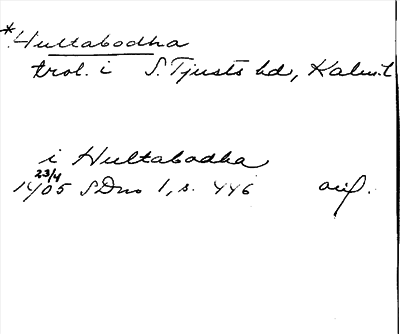 *Hultabodha
trol. i S. Tjusts hd, Kalm.l
i Hultabodha
23/4
1405 SDns 1, s. 446 orig.